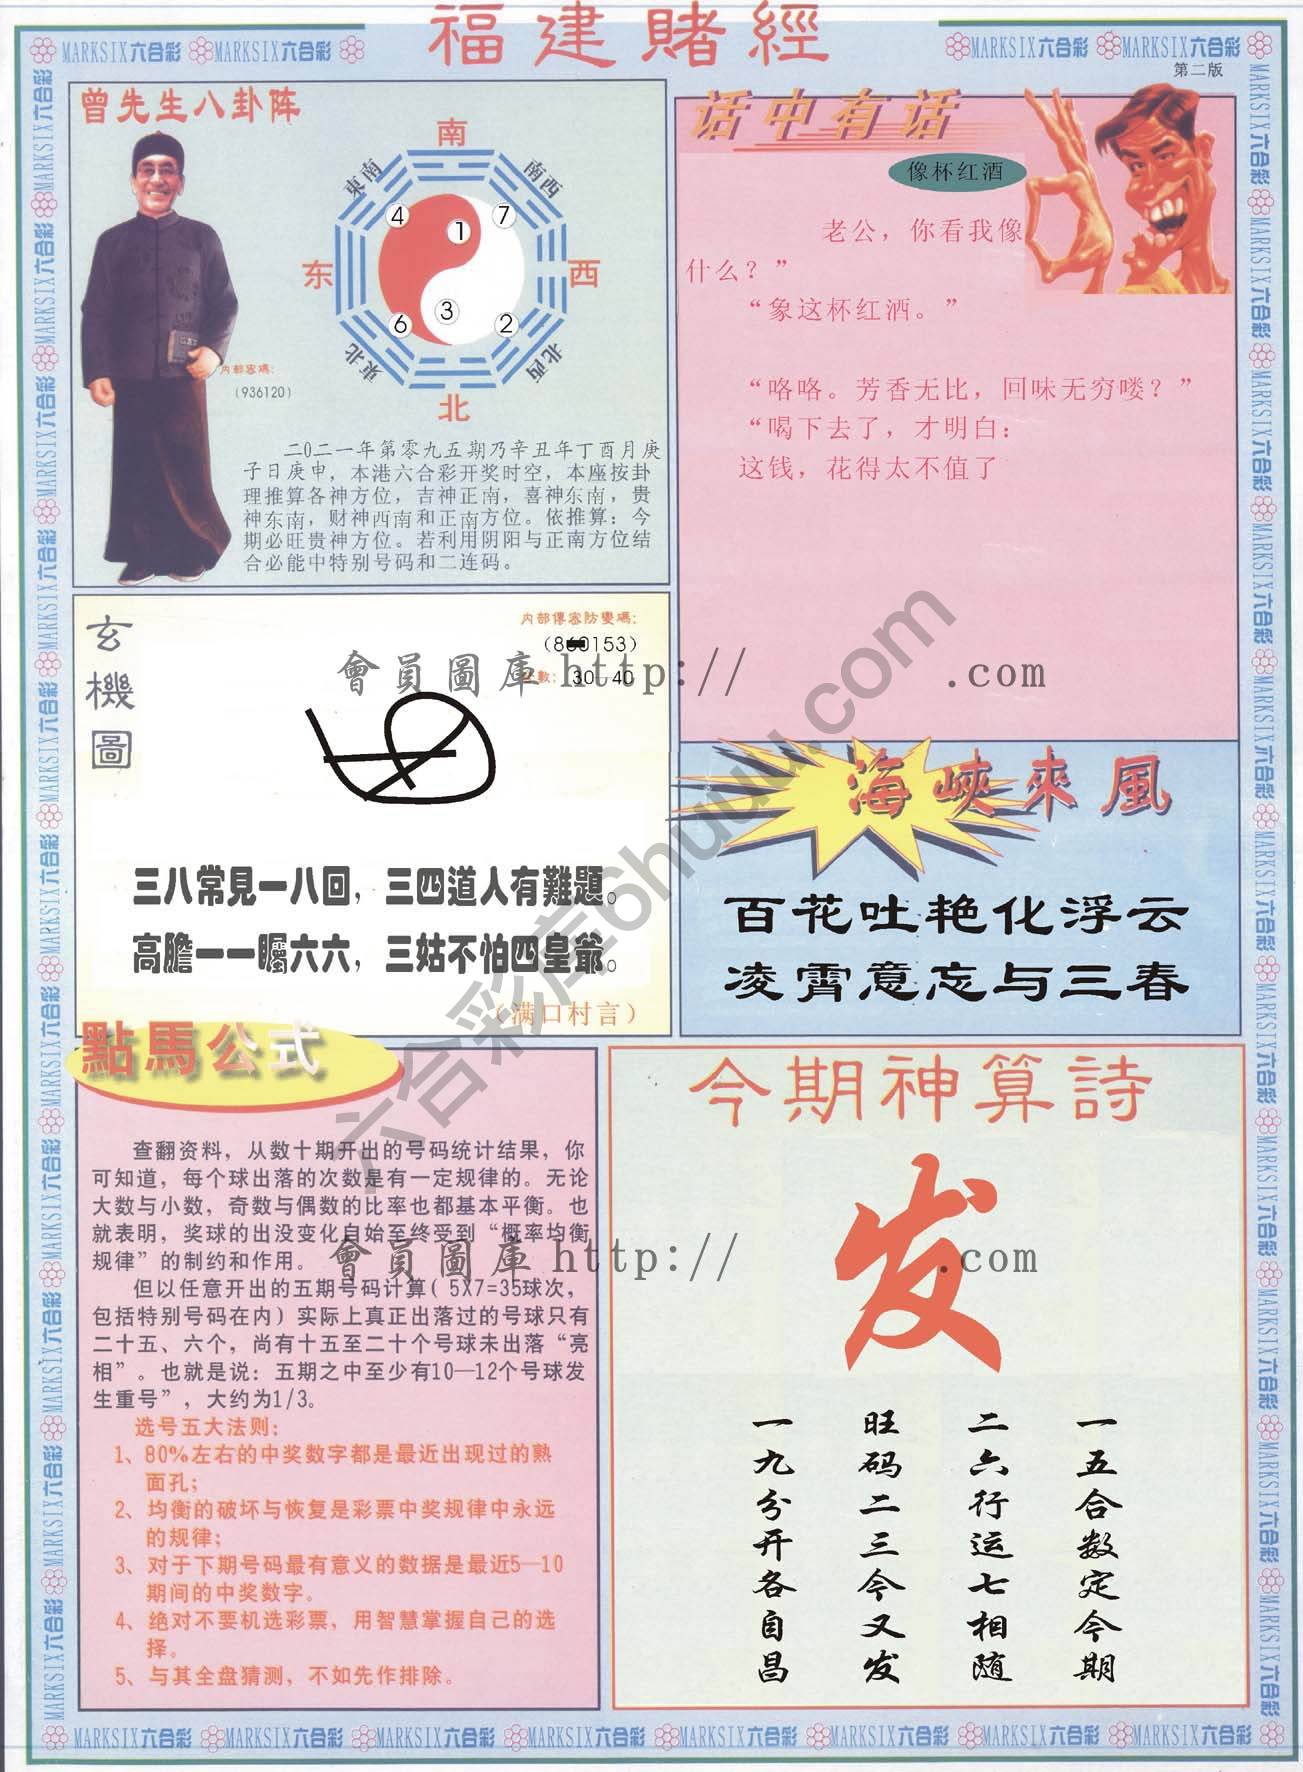 福建賭經
MARKSIX六合彩 MARKSIX六合彩
MARKSIX六合彩 MARKSIX六合彩
第二版
曾先生八卦阵
南
東南
南西
4
7
1
东
西
3
6
2
東北
北西
北
内部密碼：
（936120）
二0二一年第零九五期乃辛丑年丁酉月庚
子日庚申，本港六合彩开奖时空，本座按卦
理推算各神方位，吉神正南，喜神东南，贵
神东南，财神西南和正南方位。依推算：今
期必旺贵神方位。若利用阴阳与正南方位结
合必能中特别号码和二连码。
话中有话
像杯红酒
老公，你看我像
什么？”
“象这杯红酒。”
“咯咯。芳香无比，回味无穷喽？”
“喝下去了，才明白：
这钱，花得太不值了
玄機圖
内部傳密防變碼：
30-40
三八常見一八回，三四道人有難題。
高膽一一矚六六，三姑不怕四皇爺。
（满口村言）
會員圖庫 http:// .com
海峽來風
百花吐艳化浮云
凌霄意忘与三春
點馬公式
查翻资料，从数十期开出的号码统计结果，你
可知道，每个球出落的次数是有一定规律的。无论
大数与小数，奇数与偶数的比率也都基本平衡。也
就表明，奖球的出没变化自始至终受到“概率均衡
规律”的制约和作用。
但以任意开出的五期号码计算（5X7=35球次，
包括特别号码在内）实际上真正出落过的号球只有
二十五、六个，尚有十五至二十个号球未出落“亮
相”。也就是说：五期之中至少有10—12个号球发
生重号”，大约为1/3。
选号五大法则：
1、80%左右的中奖数字都是最近出现过的熟
面孔；
2、均衡的破坏与恢复是彩票中奖规律中永远
的规律；
3、对于下期号码最有意义的数据是最近5—10
期间的中奖数字。
4、绝对不要机选彩票，用智慧掌握自己的选
择。
5、与其全盘猜测，不如先作排除。
今期神算詩
发
一五合数定今期
二六行运七相随
旺码二三今又发
一九分开各自昌
會員圖庫 http:// .com
六合彩库6huuu.com
MARKSIX六合彩 MARKSIX六合彩 MARKSIX六合彩 MARKSIX六合彩 MARKSIX六合彩 MARKSIX六合彩 MARKSIX六合彩 MARKSIX六合彩